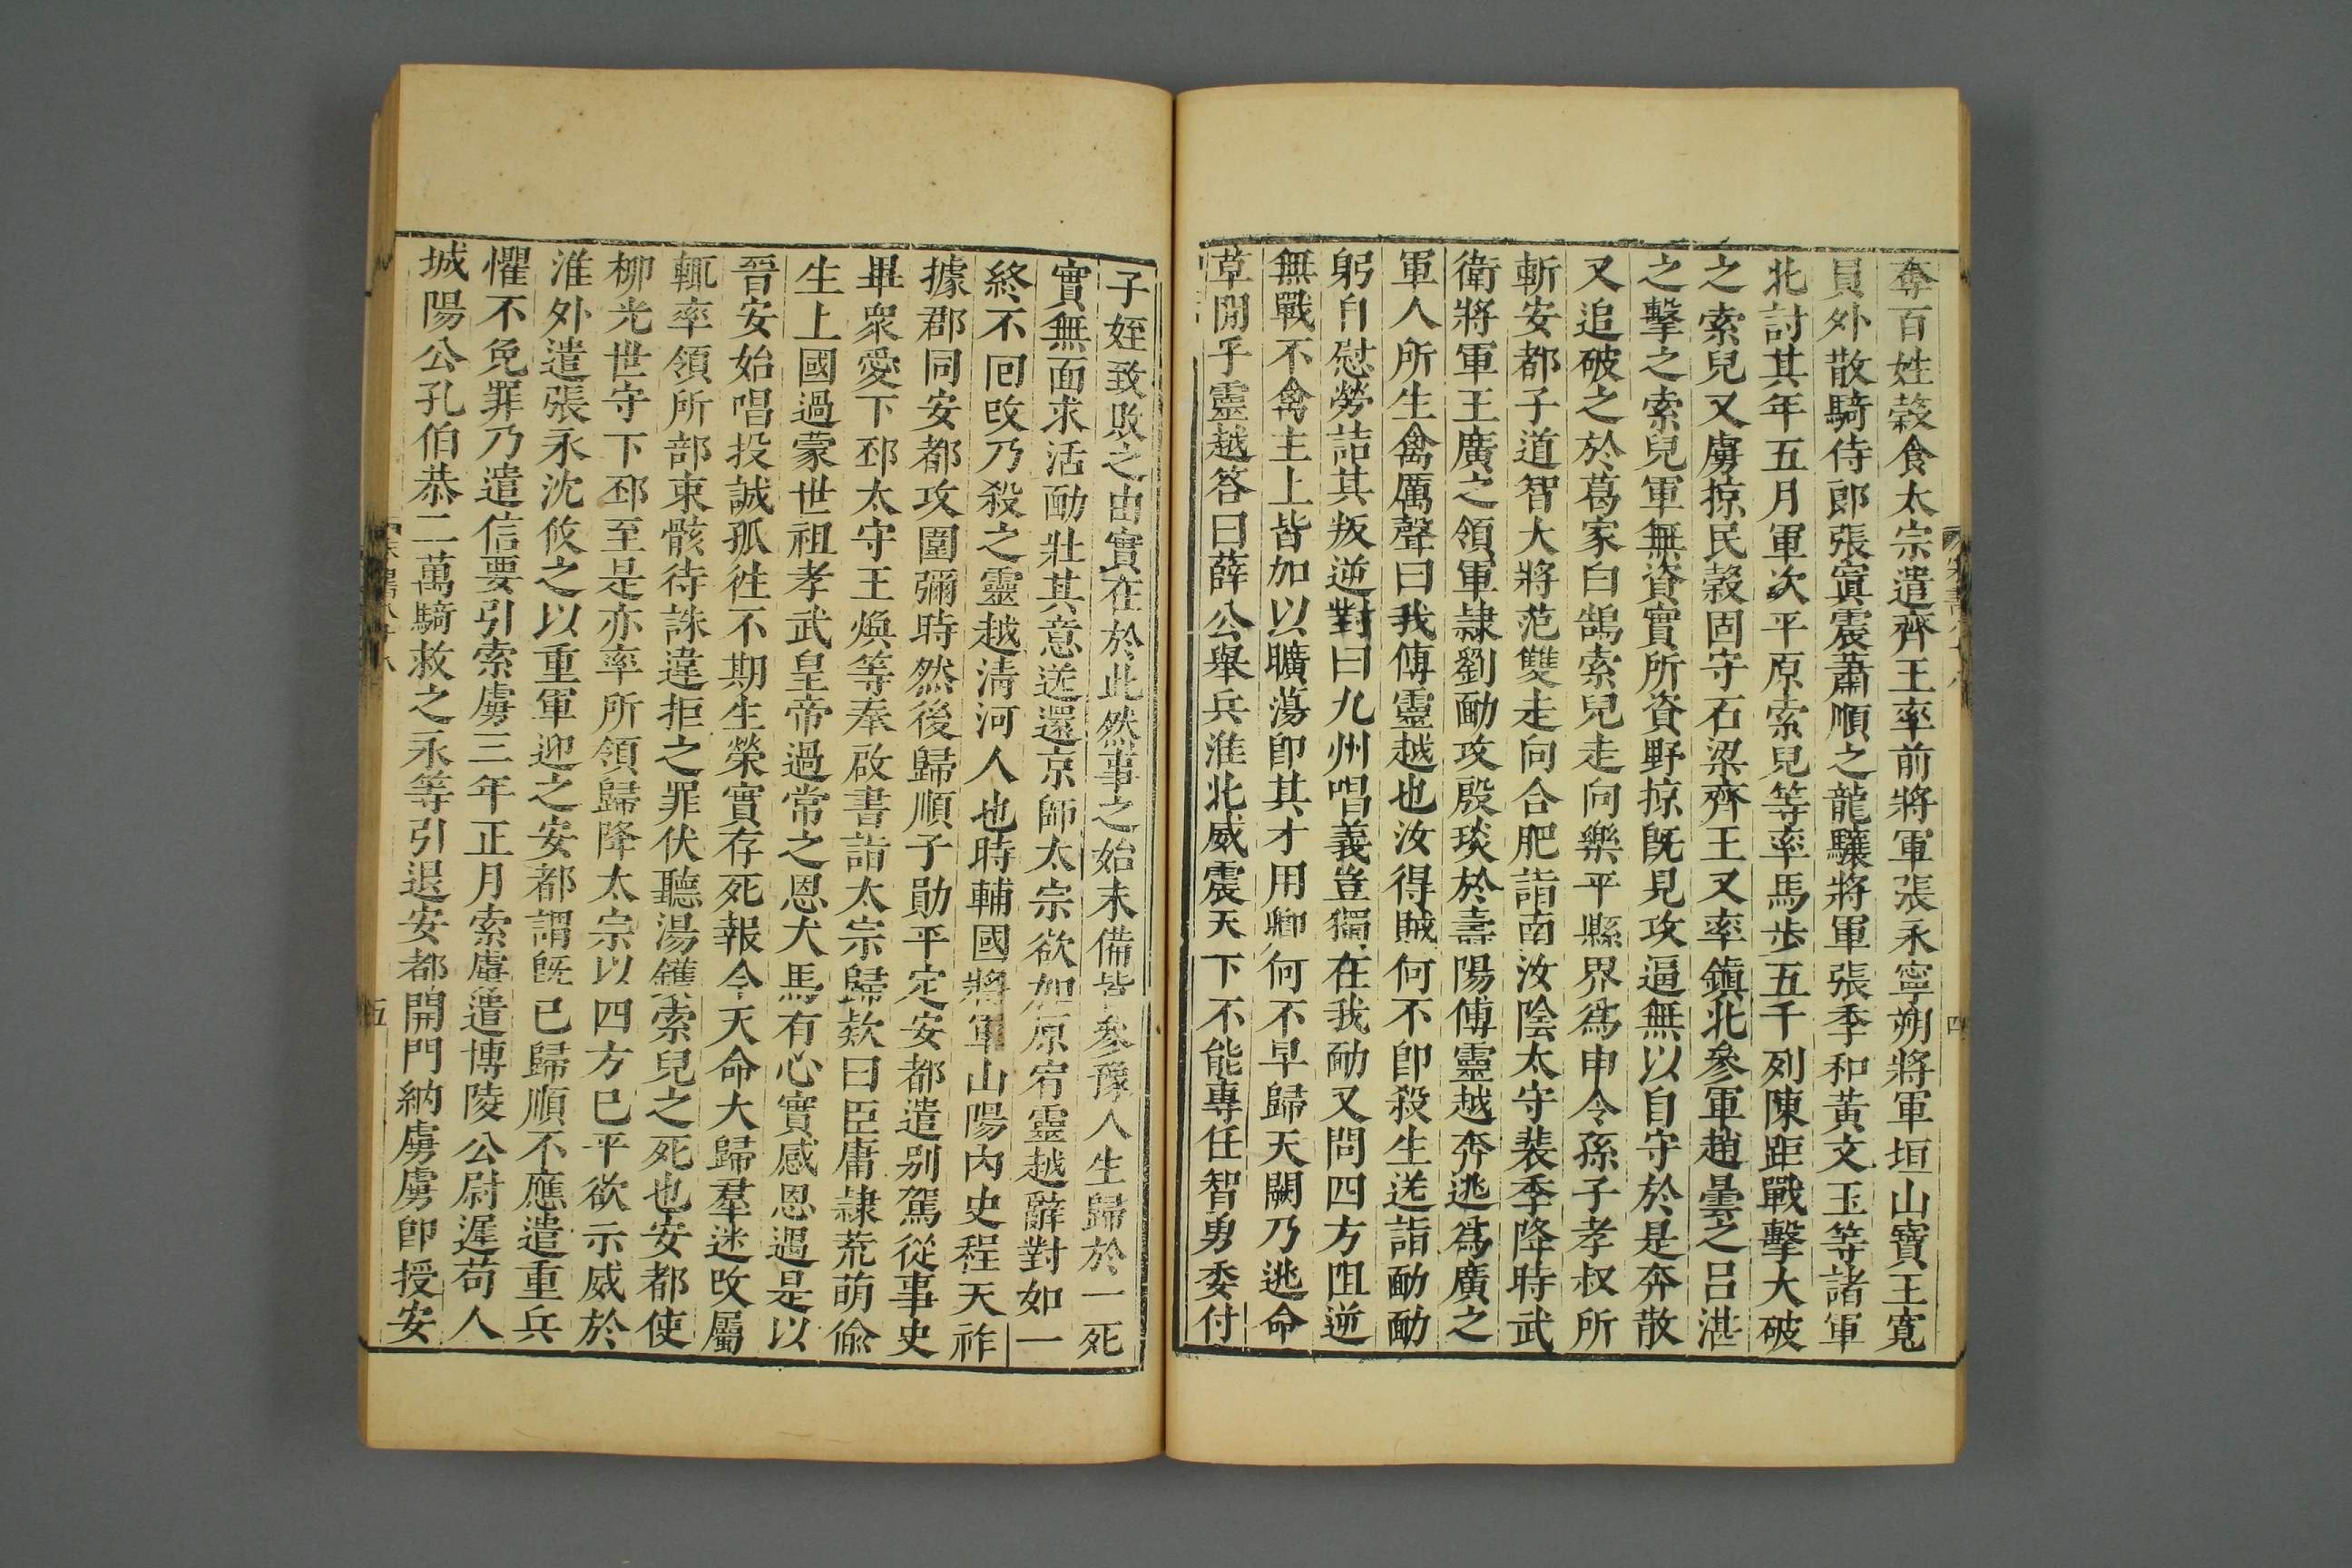 奪百姓穀食太宗遣齊王率前將軍張永寧朔將軍垣山寶王寬
員外散騎侍郎張寘震蕭順之龍驤將軍張季和黃文玉等諸軍
北討其年五月軍次平原索兒等率馬步五千列陳距戰擊大破
之索兒又虜掠民穀固守石梁齊王又率鎮北參軍趙曇之呂湛
之擊之索兒軍無資實所資野掠旣見攻逼無以自守於是奔散
又追破之於葛家白鵠索兒走向樂平縣界爲申令孫子孝叔所
斬安都子道智大將范雙走向合肥詣南汝陰太守裴季降時武
衛將軍王廣之領軍隷劉勔攻殷琰於壽陽傅靈越奔逃爲廣之
軍人所生禽厲聲曰我傅靈越也汝得賊何不卽殺生送詣勔勔
躬自慰勞詰其叛逆對曰九州唱義豈獨在我勔又問四方阻逆
無戰不禽主上皆加以曠蕩卽其才用卿何不早歸天闕乃逃命
草閒乎靈越答曰薛公舉兵淮北威震天下不能專任智勇委付
四
子姪致敗之由實在於此然事之始末備皆參豫人生歸於一死
實無面求活勔壯其意送還京師太宗欲加原宥靈越辭對如一
終不回改乃殺之靈越淸河人也時輔國將軍山陽內史程天祚
據郡同安都攻圍彌時然後歸順子勛平定安都遣別駕從事史
畢衆愛下邳太守王煥等奉啟書詣太宗歸欵曰臣庸隷荒萌偸
生上國過蒙世祖孝武皇帝過常之恩犬馬有心實感恩遇是以
晉安始唱投誠孤往不期生榮實存死報今天命大歸羣迷改屬
輒率領所部束骸待誅違拒之罪伏聽湯鑊索兒之死也安都使
柳光世守下邳至是亦率所領歸降太宗以四方已平欲示威於
淮外遣張永沈攸之以重軍迎之安都謂旣已歸順不應遣重兵
懼不免罪乃遣信要引索虜三年正月索虜遣博陵公尉遲苟人
城陽公孔伯恭二萬騎救之永等引退安都開門納虜虜卽授安
五